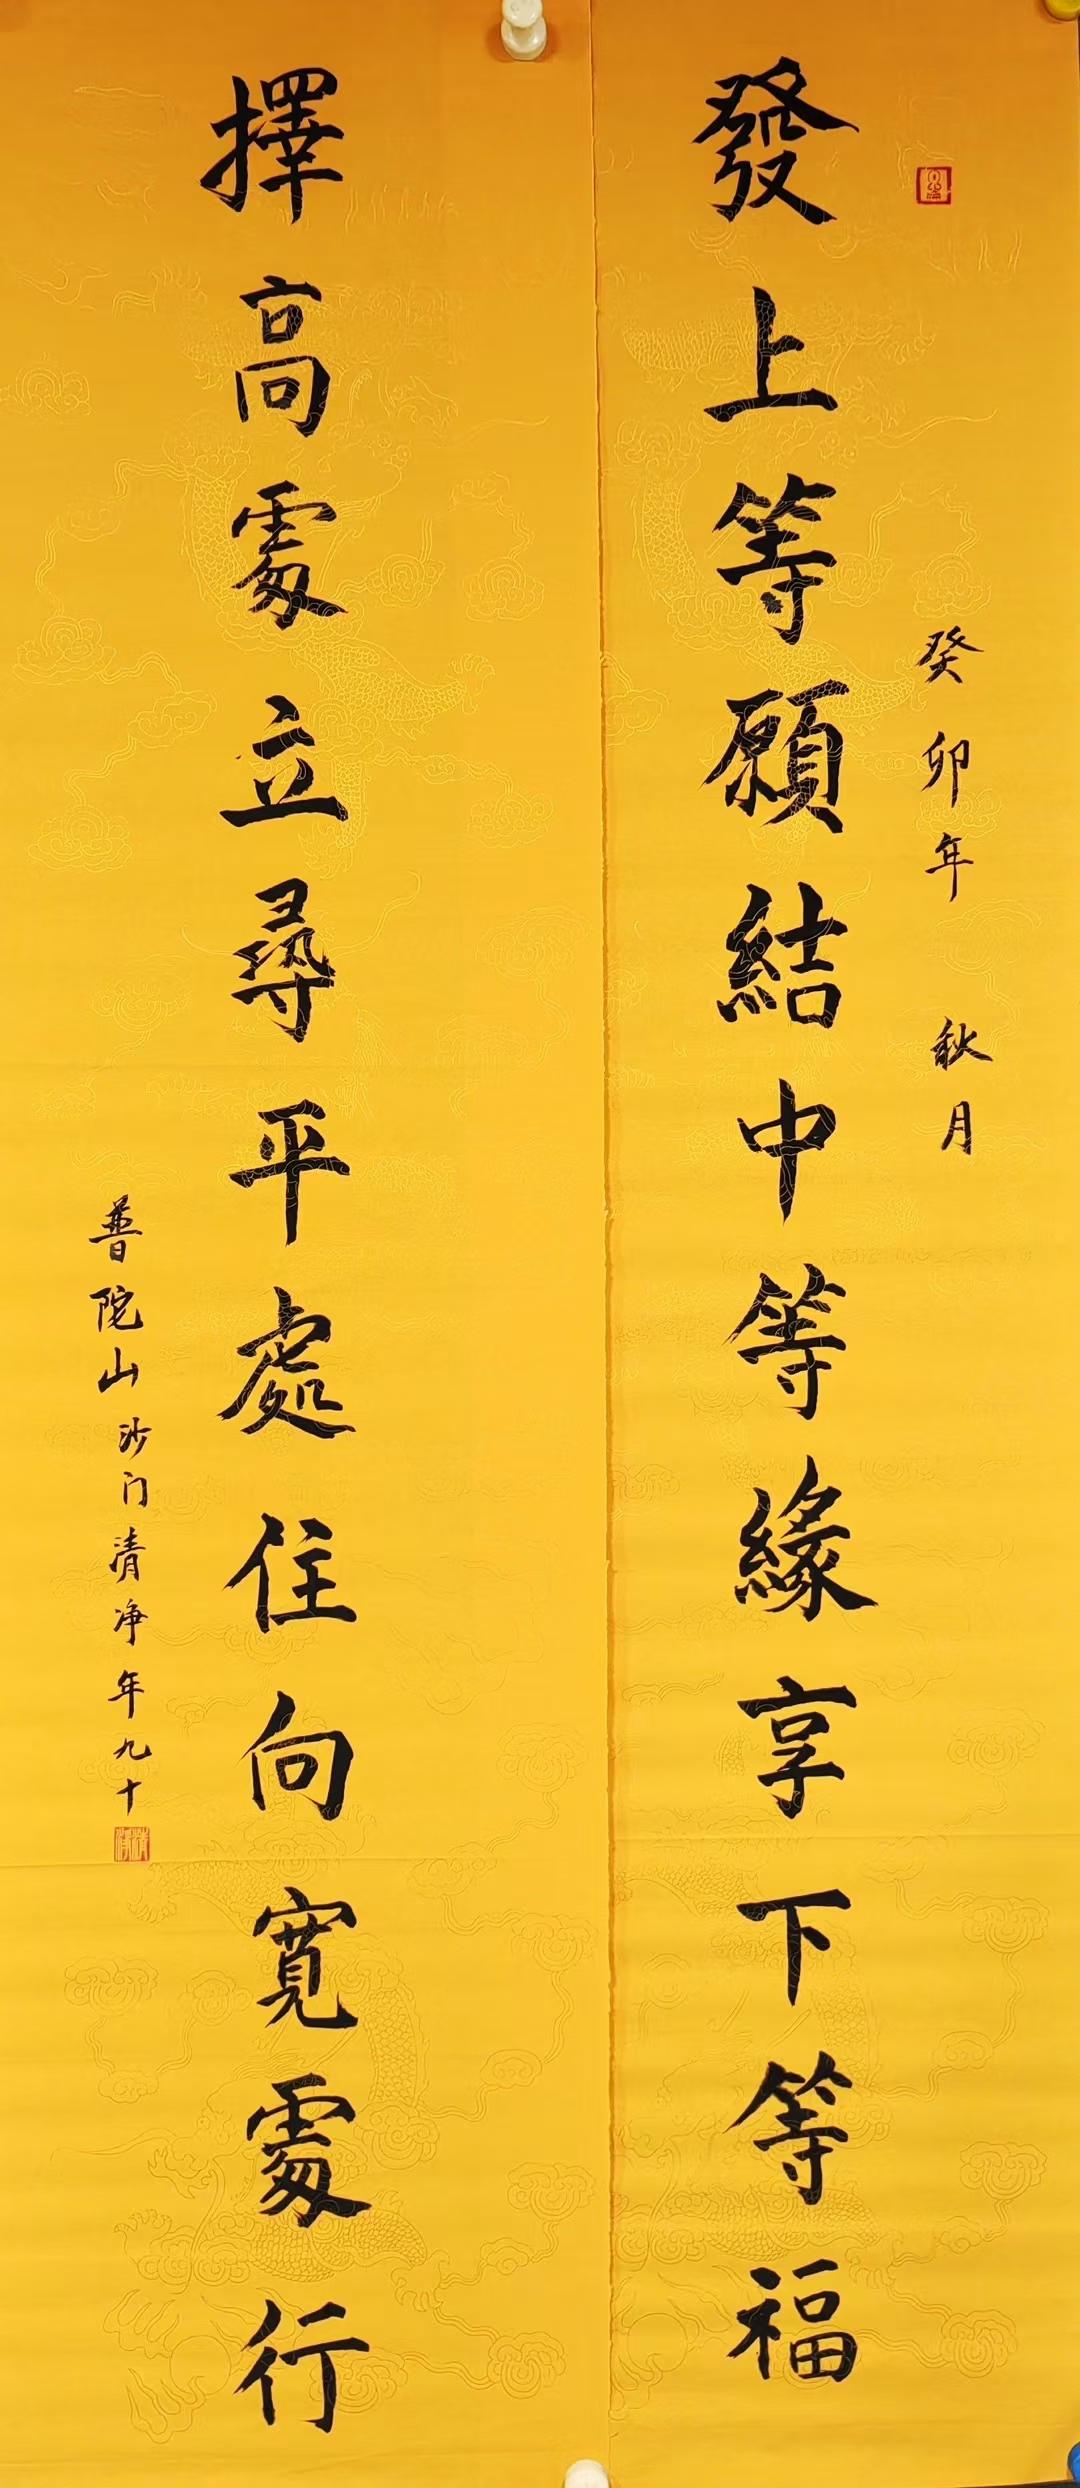 發上等願結中等緣享下等福
癸卯年 秋月
擇高處立尋平處住向寬處行
普陀山沙门清净年九十